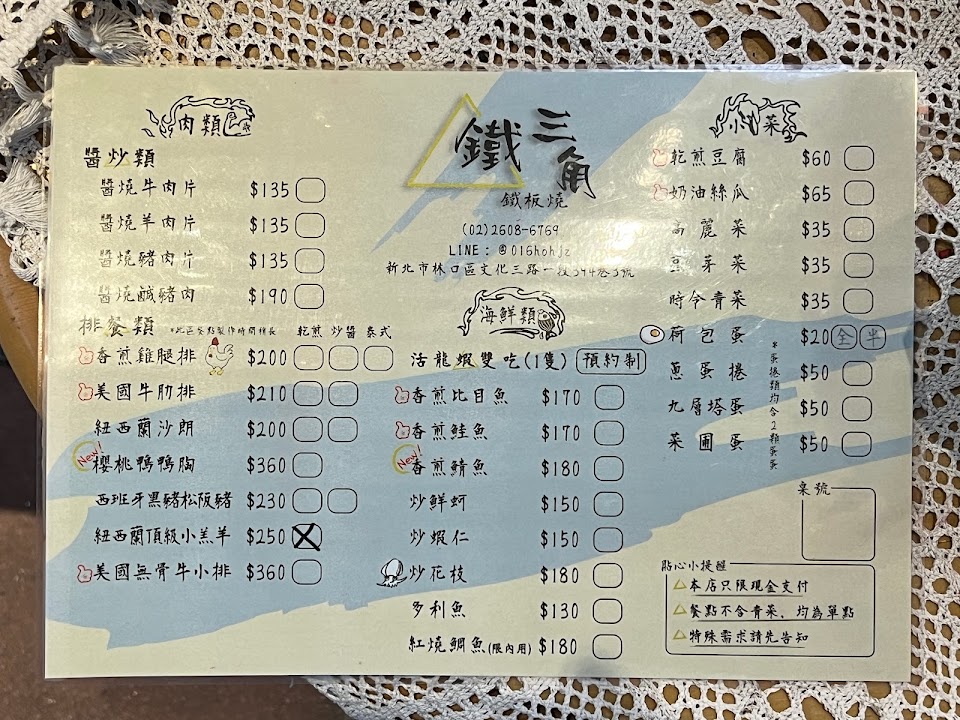 肉類
醬炒類
醬燒牛肉片 $135
醬燒羊肉片 $135
醬燒豬肉片 $135
醬燒鹹豬肉 $190
排餐類 *此區餐點製作時間稍長 乾煎 炒醬 泰式
香煎雞腿排 $200
美國牛肋排 $210
紐西蘭沙朗 $200
New! 櫻桃鴨鴨胸 $360
西班牙黑豬松阪豬 $230
紐西蘭頂級小羔羊 $250
美國無骨牛小排 $360
鐵三角
鐵板燒
(02)2608-6769
LINE：@016hohjz
新北市林口區文化三路一段394巷3號
海鮮類
活龍蝦雙吃(1隻) 預約制
香煎比目魚 $170
香煎鮭魚 $170
New! 香煎鯖魚 $180
炒鮮蚵 $150
炒蝦仁 $150
炒花枝 $180
多利魚 $130
紅燒鯛魚(限內用) $180
小菜
乾煎豆腐 $60
奶油絲瓜 $65
高麗菜 $35
豆芽菜 $35
時令青菜 $35
荷包蛋 $20 全 半
蔥蛋捲 $50
九層塔蛋 $50
菜圃蛋 $50
*蛋捲類均含2顆蛋蛋
桌號
貼心小提醒
本店只限現金支付
餐點不含青菜，均為單點
特殊需求請先告知